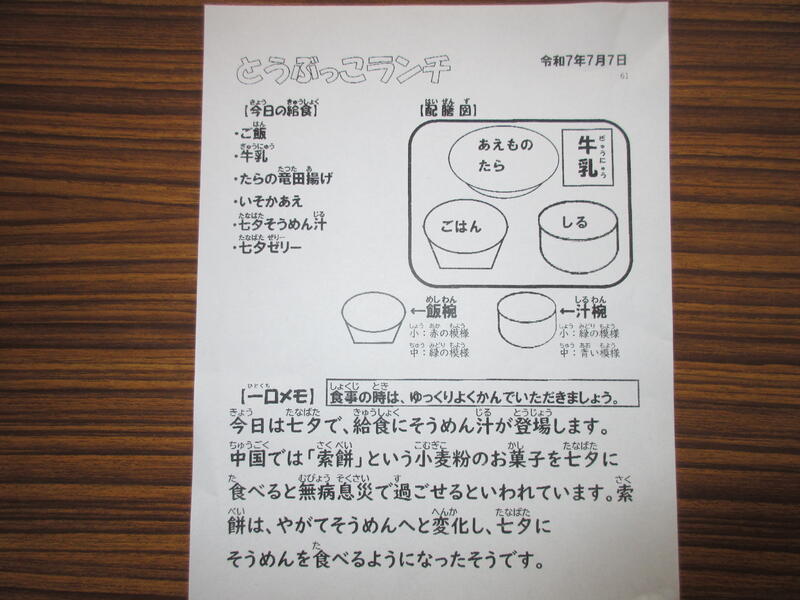 とうぶっこランチ
令和7年7月7日
61
【今日の給食】
・ご飯
・牛乳
・たらの竜田揚げ
・いそかあえ
・七夕そうめん汁
・七夕ゼリー
【配膳図】
あえもの
たら
牛乳
ごはん
しる
←飯椀
小：赤の模様
中：緑の模様
←汁椀
小：緑の模様
中：青い模様
【一口メモ】
食事の時は、ゆっくりよくかんでいただきましょう。
今日は七夕で、給食にそうめん汁が登場します。
中国では「索餅」という小麦粉のお菓子を七夕に
食べると無病息災で過ごせるといわれています。索
餅は、やがてそうめんへと変化し、七夕に
そうめんを食べるようになったそうです。